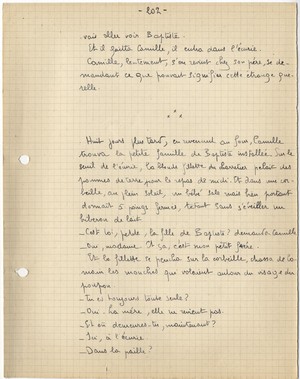 - 202 -
vais aller voir Baptiste.
Et il quitta Camille, il entra dans l'écurie.
Camille, lentement, s'en revint chez son père, se de-
mandant ce que pouvait signifier cette étrange que-
relle.
* * *
Huit jours plus tard, en revenant au four, Camille
trouva la petite famille de Baptiste installée. Sur le
seuil de l'écurie, la blonde fillette du charretier pelait des
pommes de terre pour le repas de midi. Et dans une cor-
beille, au plein soleil, un bébé sale mais bien portant
dormait à poings fermés, tétant sans s'éveiller un
biberon de lait.
_ C'est toi, petite, la fille de Baptiste? demanda Camille
_ Oui, madame. Et ça, c'est mon petit frère.
Et la fillette se pencha sur la corbeille, chassa de la
main les mouches qui volaient autour du visage du
poupon.
_ Tu es toujours toute seule?
_ Oui. Ma mère, elle ne vient pas.
_ Et où demeures-tu, maintenant?
_ Ici, à l'écurie.
_ Dans la paille?